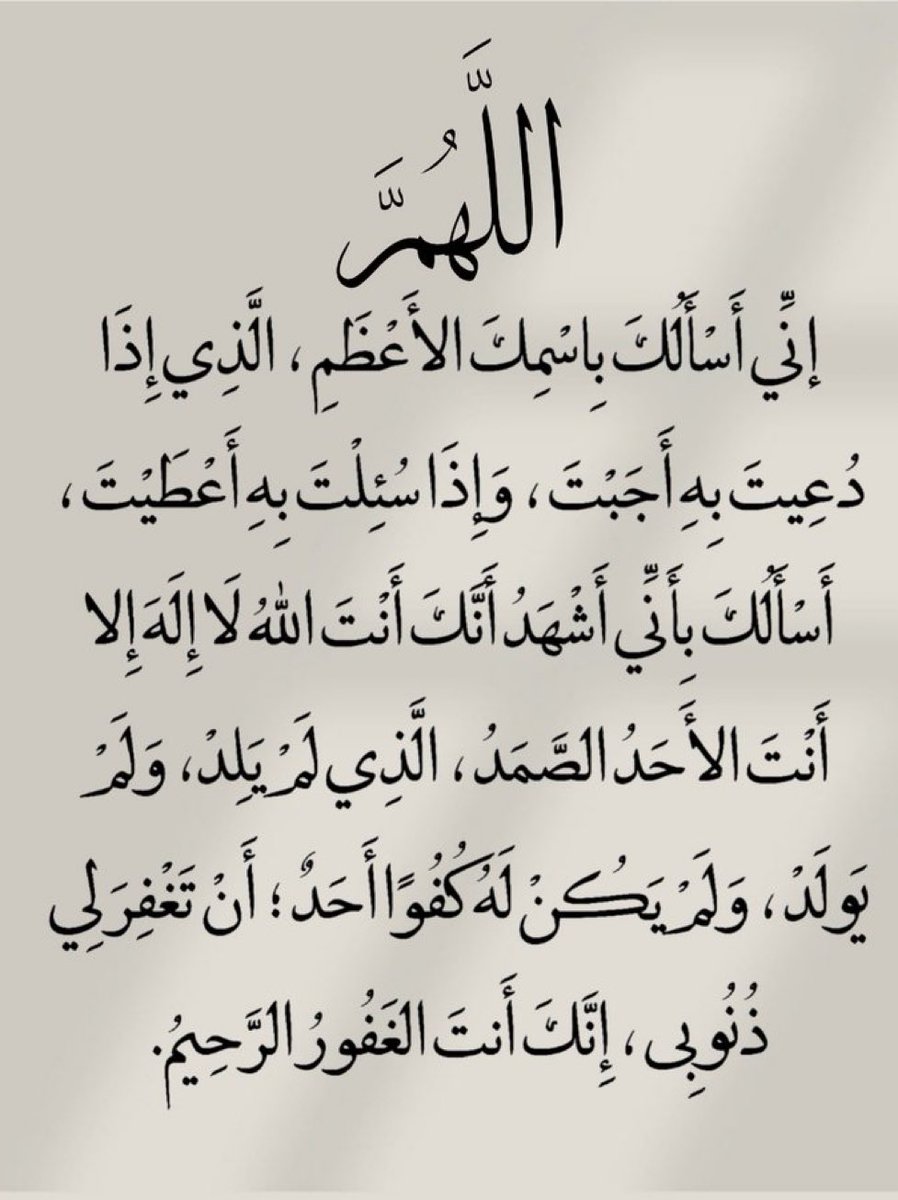 اللَّهُمَّ
إِنِّي أَسْأَلُكَ بِاسْمِكَ الأَعْظَمِ، الَّذِي إِذَا
دُعِيتَ بِهِ أَجَبْتَ، وَإِذَا سُئِلْتَ بِهِ أَعْطَيْتَ،
أَسْأَلُكَ بِأَنِّي أَشْهَدُ أَنَّكَ أَنْتَ اللهُ لَا إِلَهَ إِلا
أَنْتَ الأَحَدُ الصَّمَدُ، الَّذِي لَمْ يَلِدْ، وَلَمْ
يَولَدْ، وَلَمْ يَكُنْ لَهُ كُفُوًا أَحَدٌ؛ أَنْ تَغْفِرَ لِي
ذُنُوبِى، إِنَّكَ أَنتَ الغَفُورُ الرَّحِيمُ.